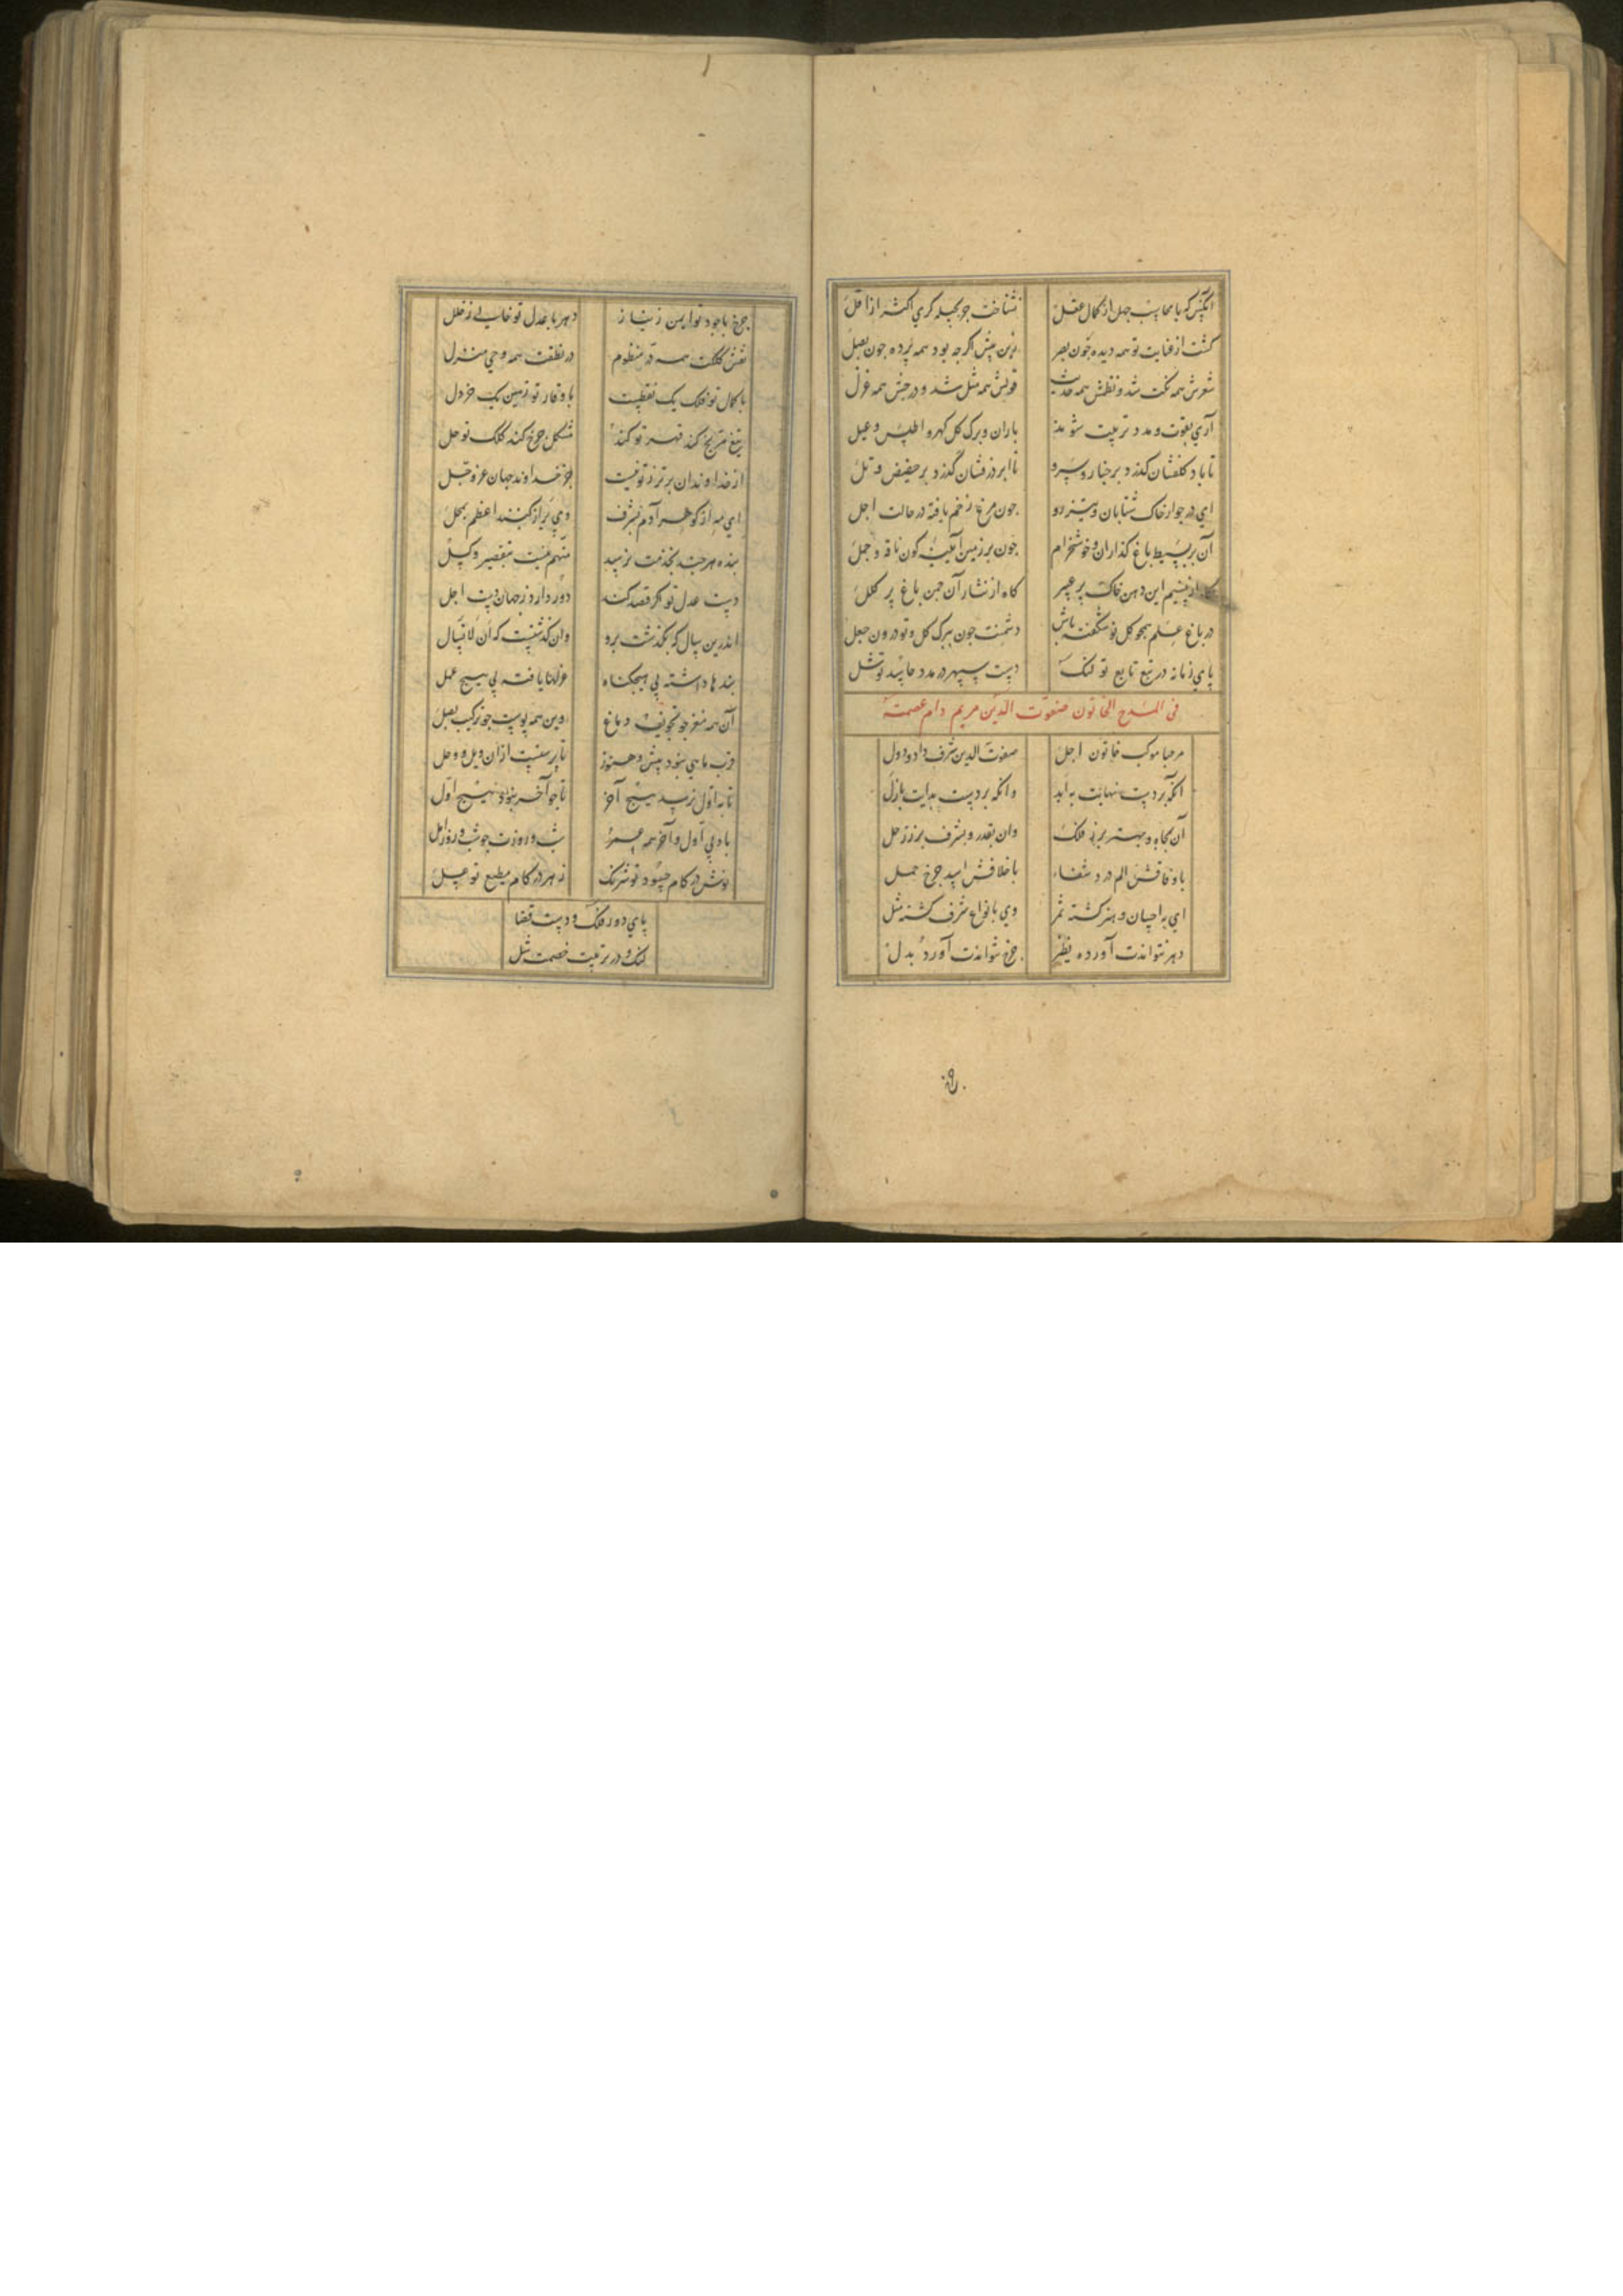 آنکس که با محاسب جهل از کمال عقل نشناخت جز بحیله گری اکثر از اقل
گشت از عنایت تو همه دیده چون بصر زین پیش اگرچه بود همه پرده چون بصل
شعرش همه نکت شد و نظمش همه حدیث قولش همه مثل شد و درجش همه غزل
آری بقوت و مدد تربیت شوند باران و برک کل کهر و اطلس و عسل
تا باد کلفشان کذرد بر چنار و سرو تا ابر درفشان گذرد بر حضیض و تل
ای در جوار خاک شتابان و تیزرو چون مرغ زخم یافته در حالت اجل
آن بر بسیط باغ گذاران و خوشخرام چون بر زمین آینه گون ناقه و جمل
گاه از نسیم این دهن خاک پر عبیر گاه از نثار آن چمن باغ پر کلل
در باغ علم همچو کل نو شکفته باش دشمنت چون ببرک کل و تو درون جعل
پای زمانه در تبع تابع تو لنک دست سپهر در مدد حاسد تو شل
فی المدح الخاتون صفوت الدین مریم دام عصمته
مرحبا موکب خاتون اجل صفوت الدین شرف داد و دول
آنکه بردست نهایت به ابد وانکه بردست بدایت بازل
آن بجاه و بهنر برز فلک وان بقدر و بشرف برز زحل
با وفاقش الم درد شفاء با خلافش اسد چرخ حمل
ای به احسان و هنر کشته ثمر وی بانواع شرف کشته مثل
دهر نتواندت آورده نظیر چرخ نتواندت آورد بدل
چرخ با جود تو ایمن ز نیاز دهر با عدل تو خالی ز خلل
نقش کلکت همه در منظوم در نطقت همه وحی منزل
با کمال تو فلک یک نقطیست با وقار تو زمین یک خردل
تیغ مریخ کند قهر تو کند مشکل چرخ کند کلک تو حل
از خداوندان برتر ز تو نیست جز خداوند جهان عز و جل
ای به از گوهر آدم بشرف وی بر از گنبد اعظم بمحل
بنده هر چند بخدمت نرسید متهم نیست بتقصیر و کسل
دست عدل تو اگر قصد کند دور دارد ز جهان دست اجل
اندرین سال که بکذشت برو وان کذشتست که آن لا تسال
بندها داشته بی هیچ گناه عزلها یافته بی هیچ عمل
آن همه مغز چو تجویف دماغ وین همه پوست چو ترکیب بصل
قرب ماهی بنود بیش و هنوز تا برستست از آن ویل و وحل
تا به اول نرسد هیچ آخر تا چو آخر بنود هیچ اول
باد بی اول و آخر همه عمر شب و روزت چو شب و روز امل
نوش در کام حسود تو شرنک زهر در کام مطیع تو عسل
پای دور فلک و دست قضا
لنک و در تربیت خصمت شل